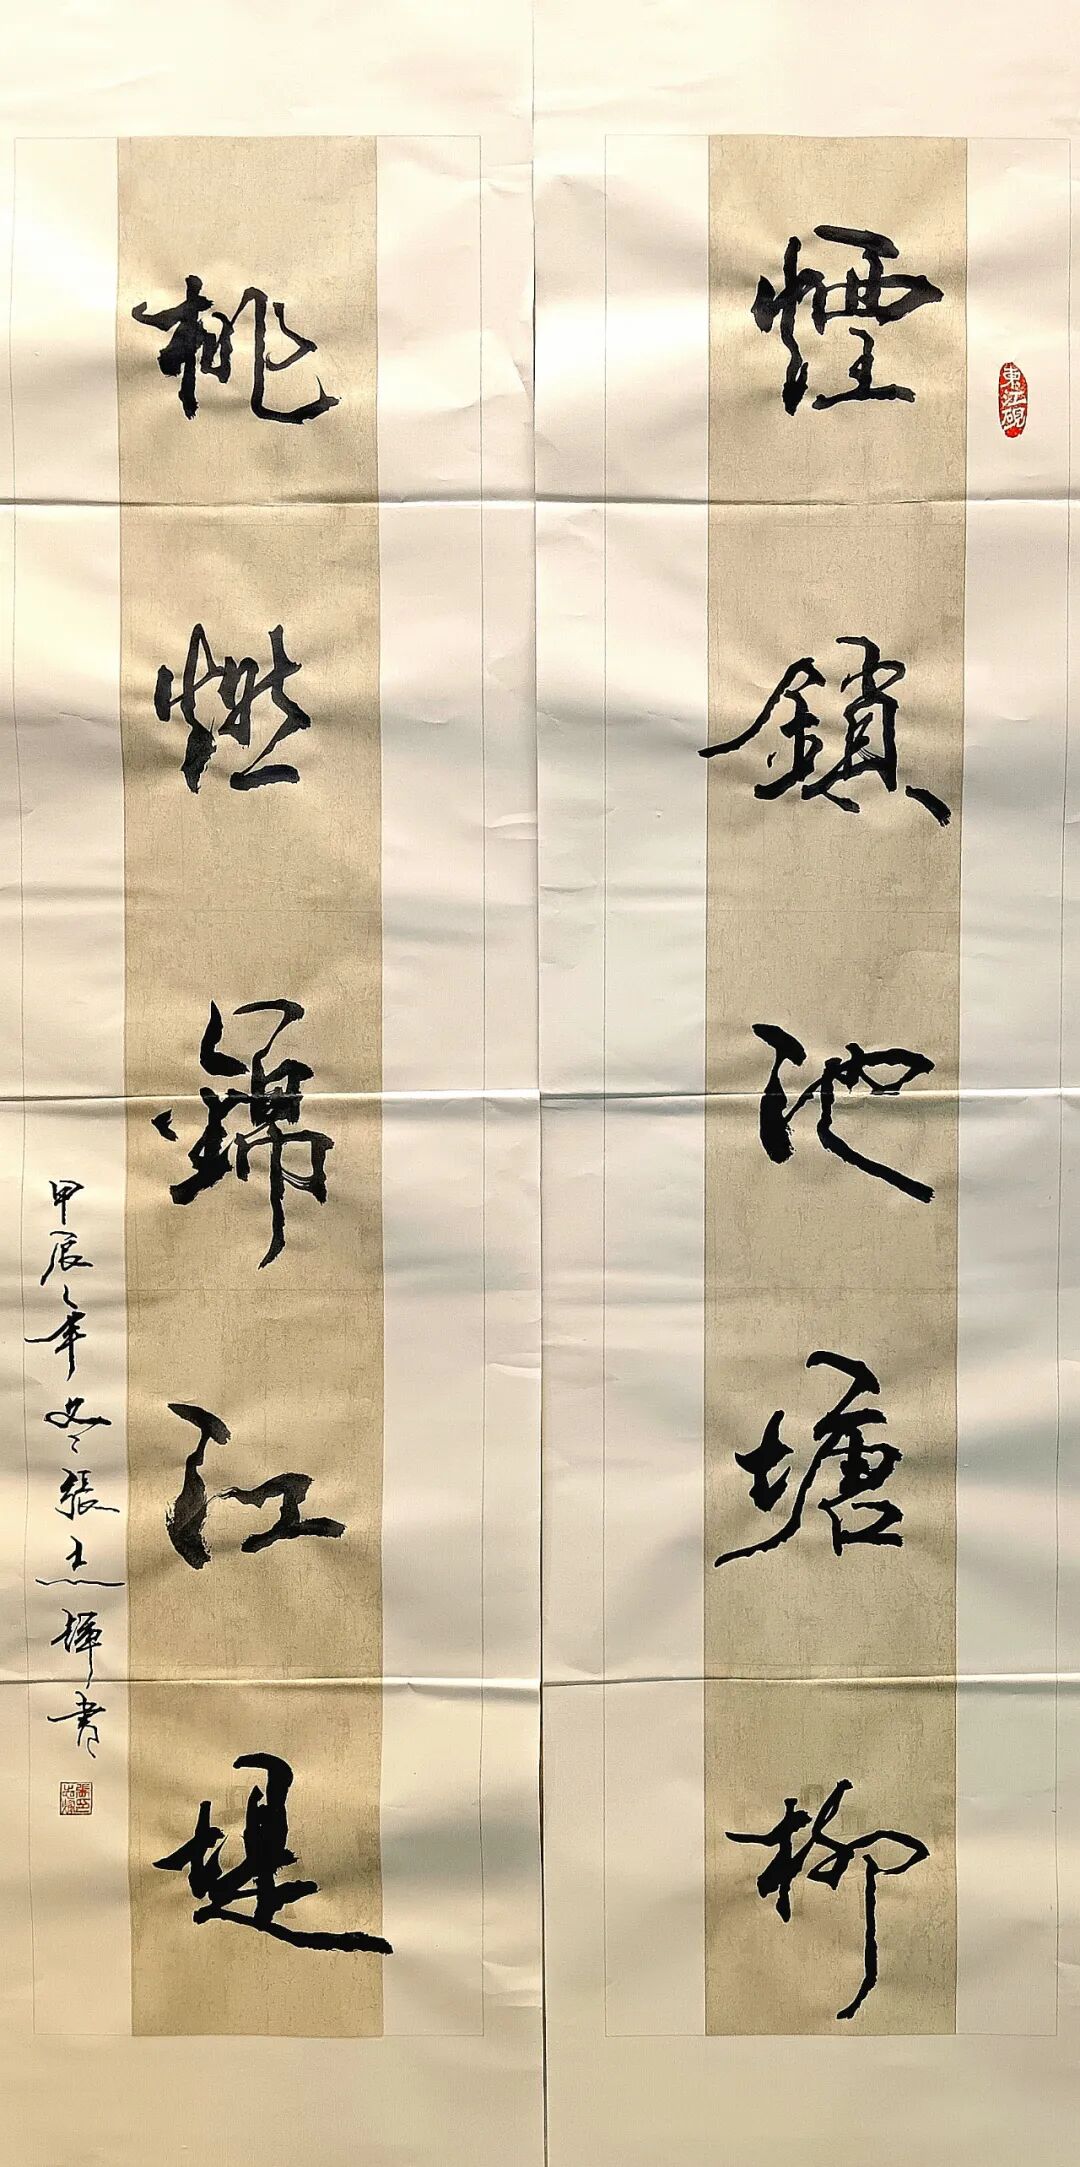 煙鎖池塘柳
東江硯
桃燃錦江堤
甲辰年冬張志輝書